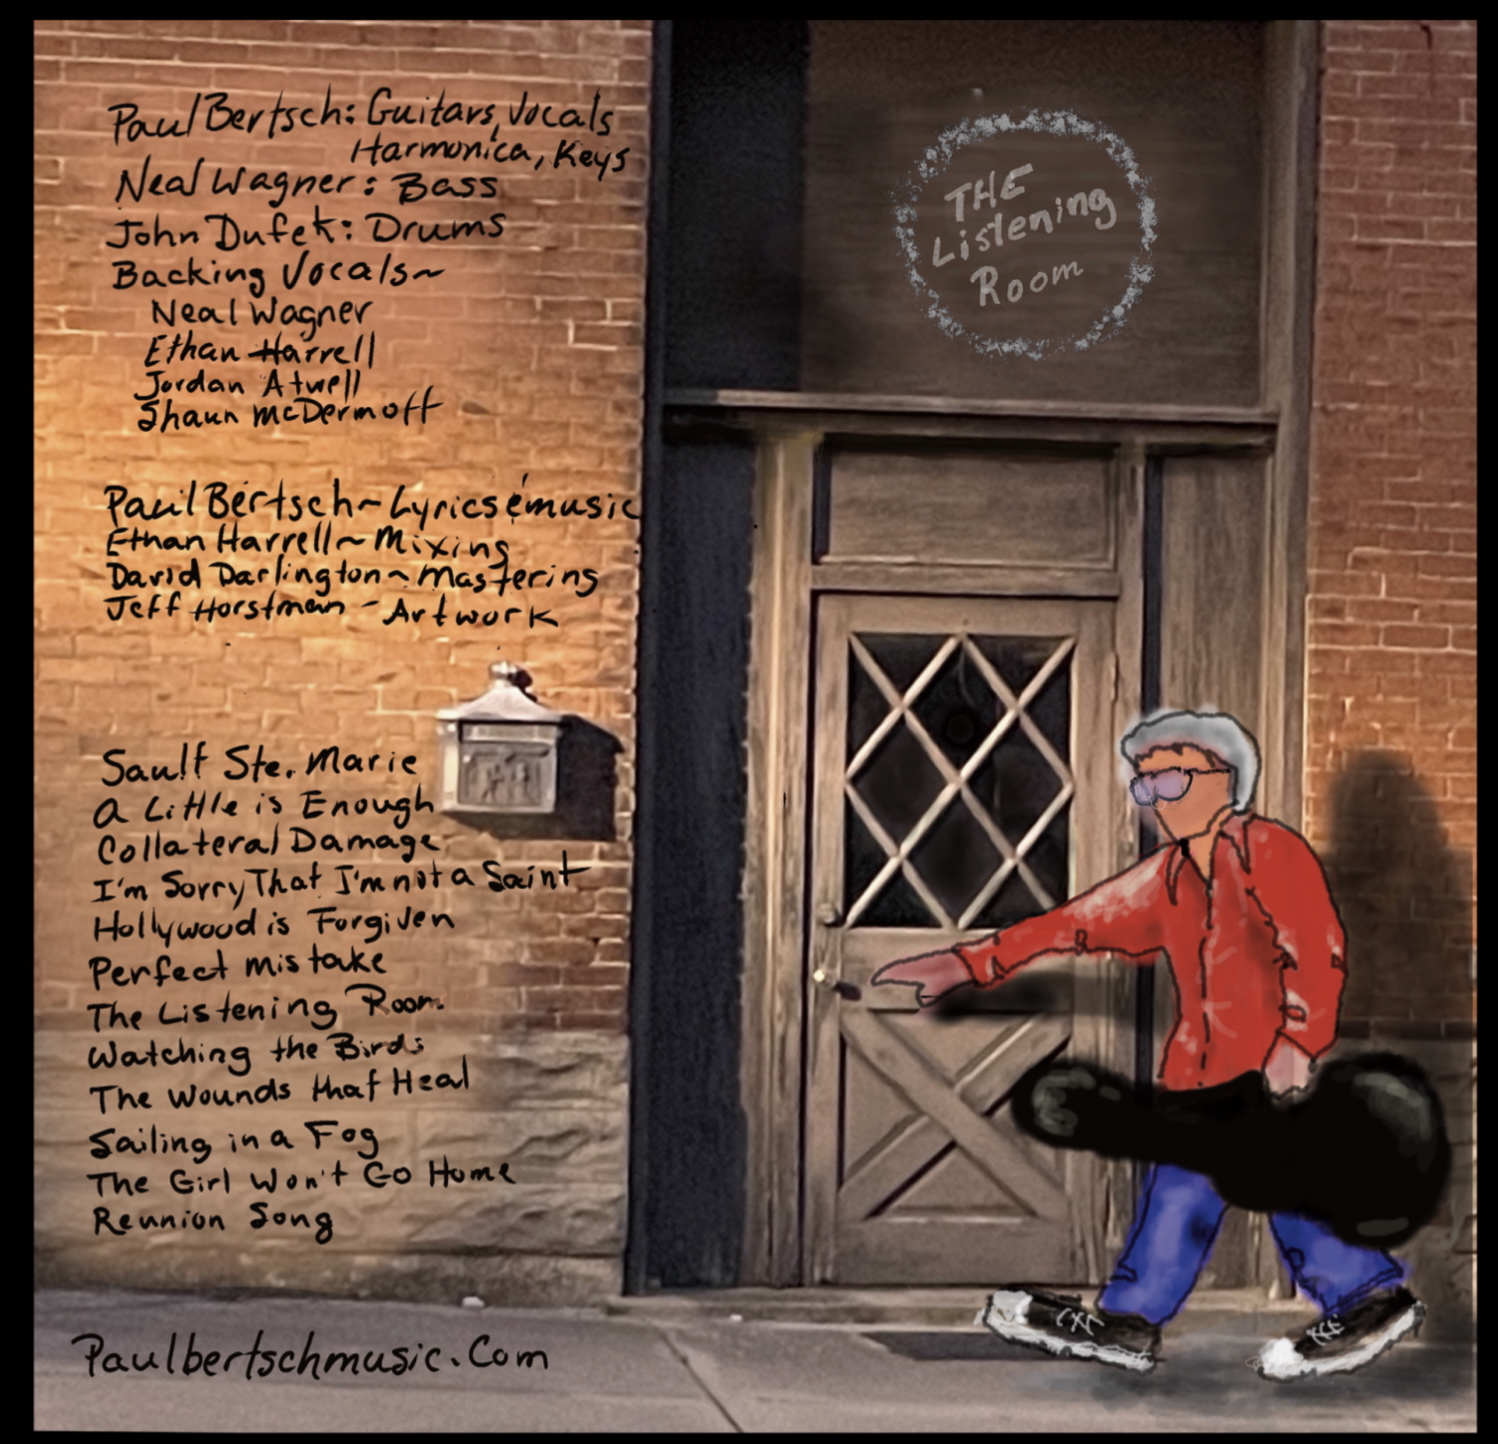 Paul Bertsch: Guitars, Vocals
Harmonica, Keys
Neal Wagner: Bass
John Dufek: Drums
Backing Vocals~
Neal Wagner
Ethan Harrell
Jordan Atwell
Shaun McDermott
Paul Bertsch~Lyrics & music
Ethan Harrell~Mixing
David Darlington~Mastering
Jeff Horstman - Artwork
Sault Ste. Marie
A Little is Enough
Collateral Damage
I'm Sorry That I'm not a Saint
Hollywood is Forgiven
Perfect mistake
The Listening Room
Watching the Birds
The Wounds that Heal
Sailing in a Fog
The Girl Won't Go Home
Reunion Song
Paulbertschmusic.Com
THE
Listening
Room